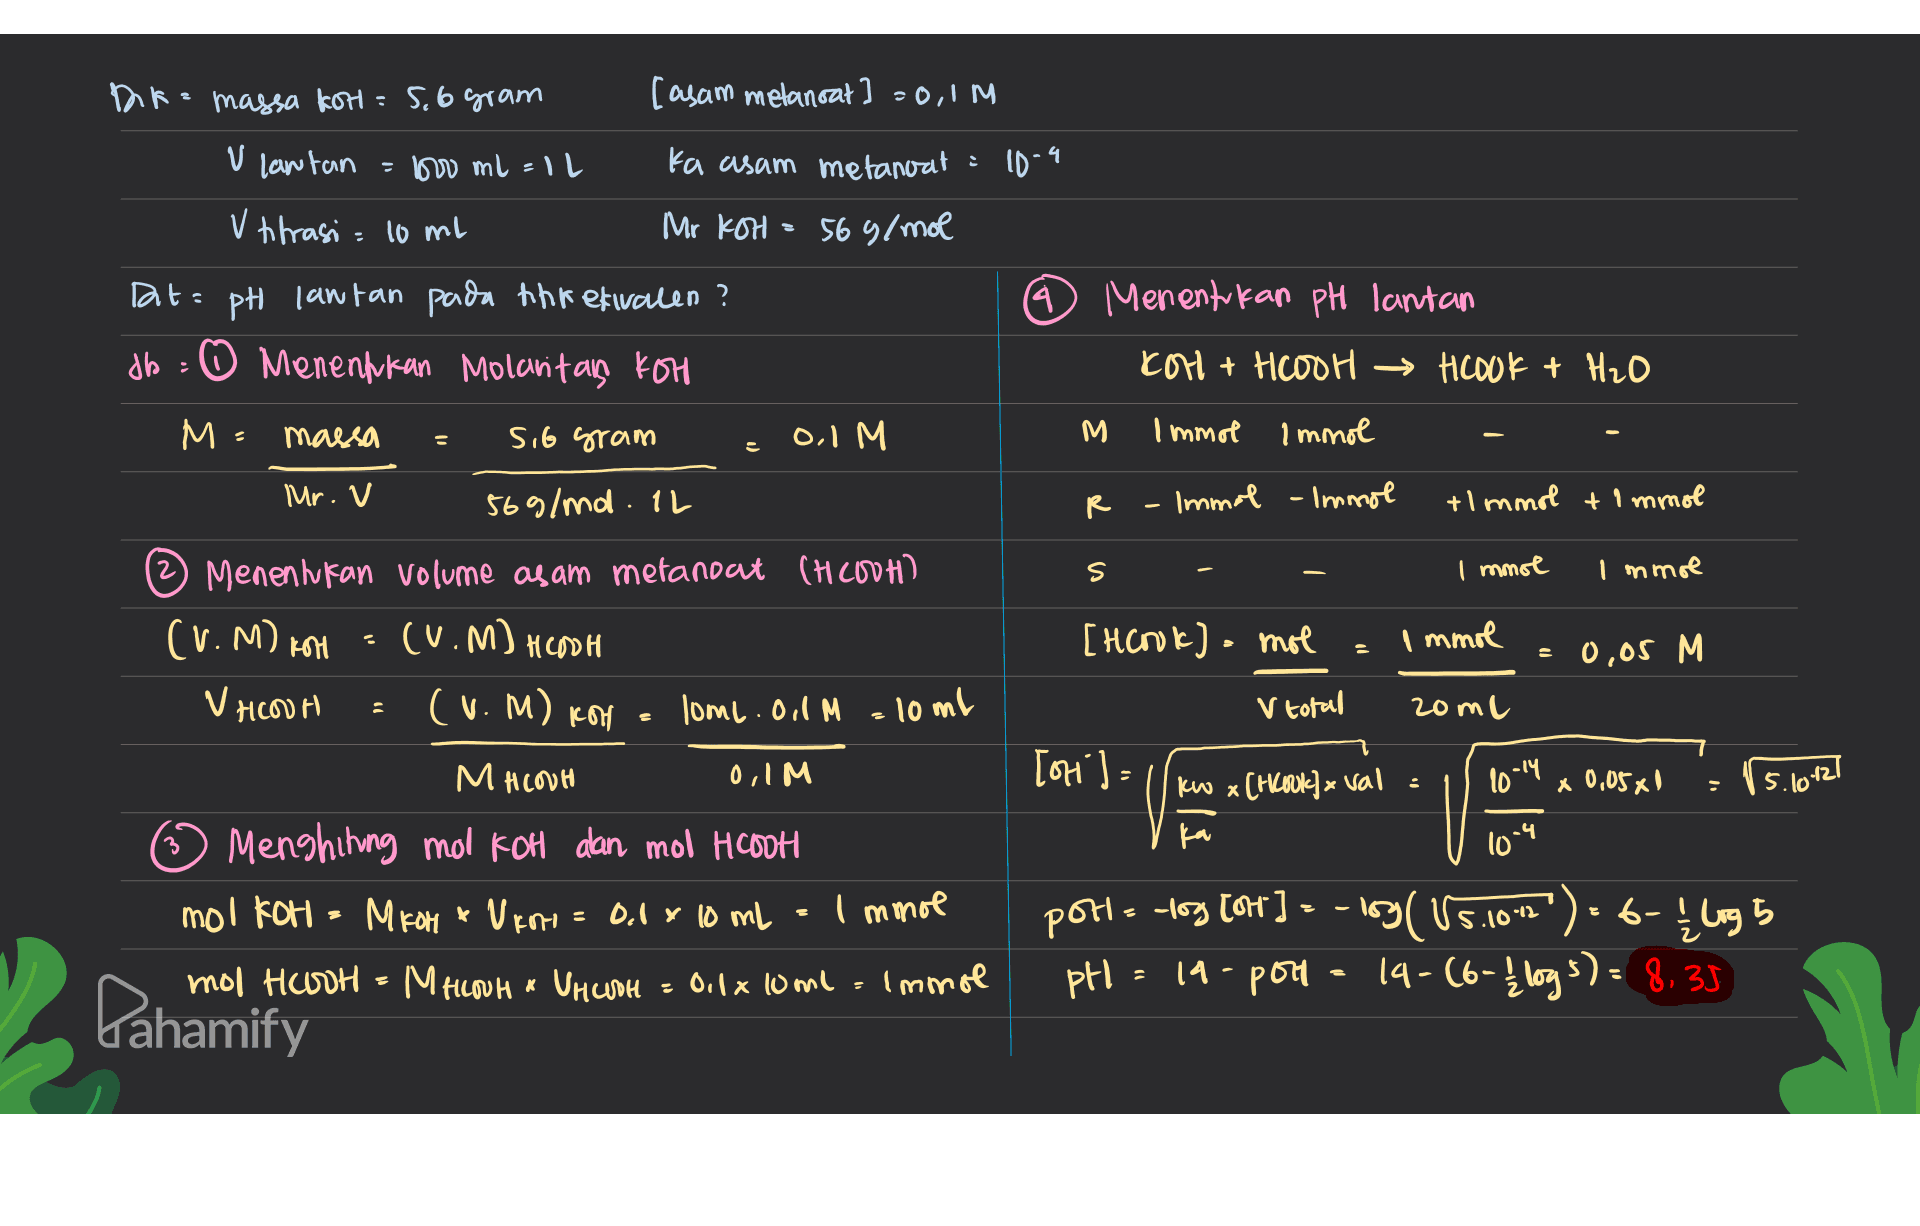 Dik = massa KOH = 5,6 gram [asam metanoat] = 0,1 M
V larutan = 1000 mL = 1 L Ka asam metanoat = 10⁻⁴
V titrasi = 10 mL Mr KOH = 56 g/mol
Dit = pH larutan pada titik ekivalen ?
db = ① Menentukan Molaritas KOH
M = massa / Mr. V = 5,6 gram / 56 g/mol . 1 L = 0,1 M
② Menentukan volume asam metanoat (HCOOH)
(V. M) KOH = (V. M) HCOOH
V HCOOH = (V. M) KOH / M HCOOH = 10mL . 0,1 M / 0,1 M = 10 mL
③ Menghitung mol KOH dan mol HCOOH
mol KOH = M KOH x V KOH = 0,1 x 10 mL = 1 mmol
mol HCOOH = M HCOOH x V HCOOH = 0,1 x 10 mL = 1 mmol
④ Menentukan pH larutan
KOH + HCOOH → HCOOK + H₂O
M 1 mmol 1 mmol - -
R - 1 mmol - 1 mmol + 1 mmol + 1 mmol
S - - 1 mmol 1 mmol
[HCOOK] = mol / V total = 1 mmol / 20 mL = 0,05 M
[OH⁻] = √(Kw / Ka x [HCOOK] x val) = √(10⁻¹⁴ / 10⁻⁴ x 0,05 x 1) = √5.10⁻¹²
pOH = -log [OH⁻] = - log (√5.10⁻¹²) = 6 - ½ log 5
pH = 14 - pOH = 14 - (6 - ½ log 5) = 8,35
Pahamify